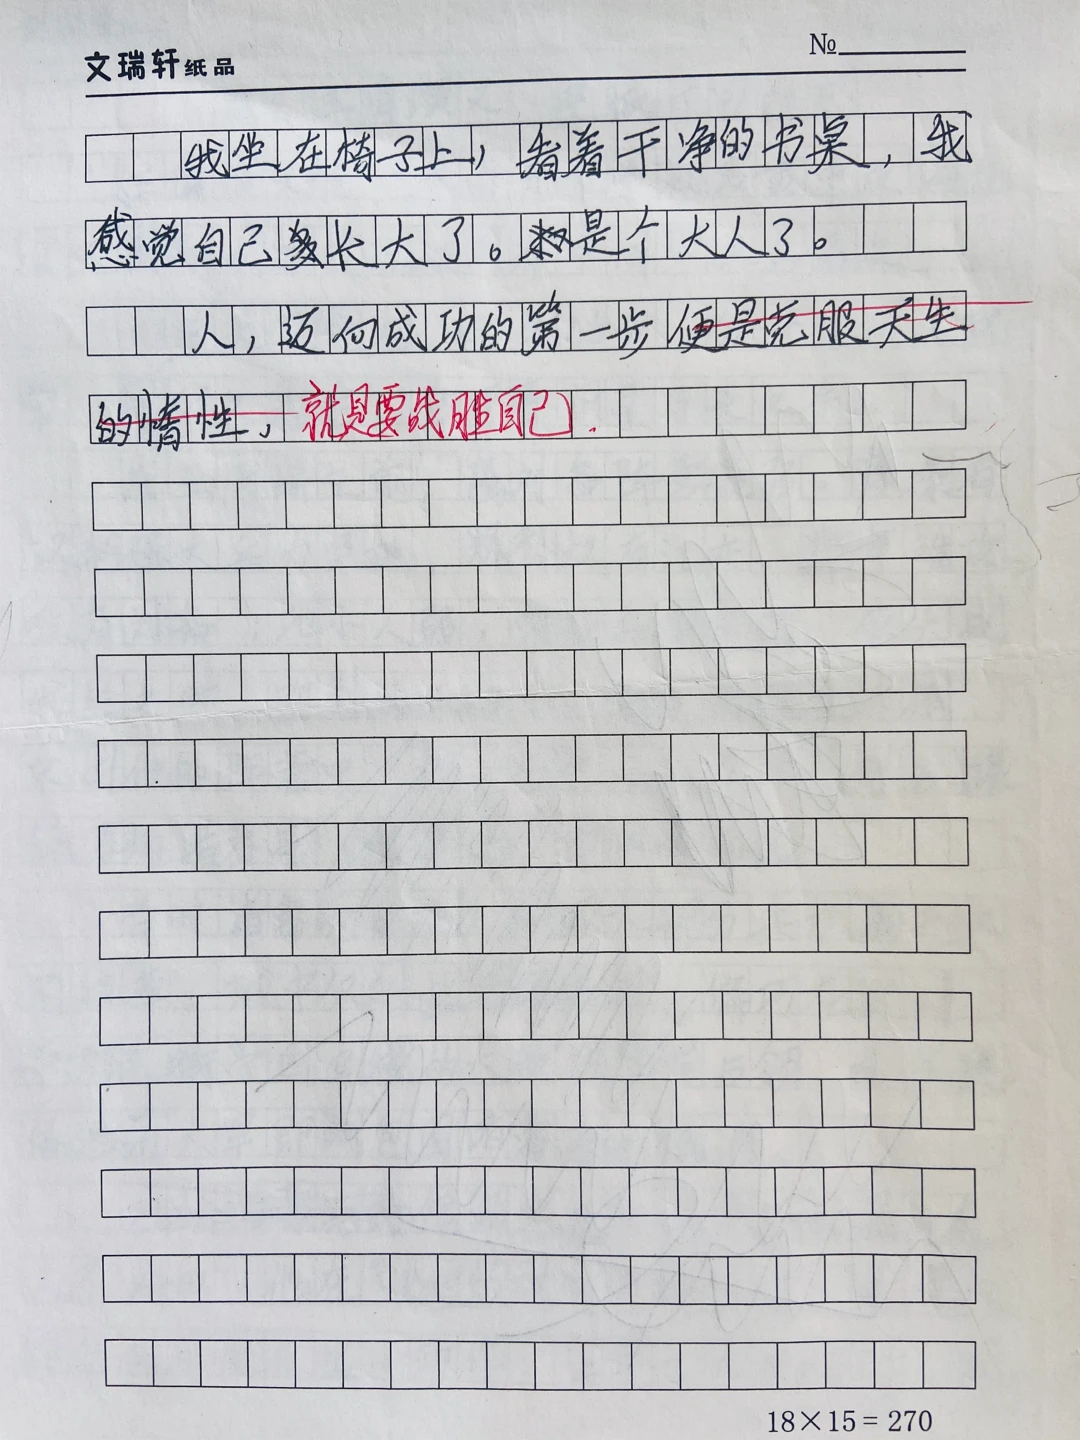 文瑞轩纸品
№
我坐在椅子上，看着干净的书桌，我
感觉自己长大了。是个大人了。
人，迈向成功的第一步便是克服天生
的惰性，就是要战胜自己.
18×15=270